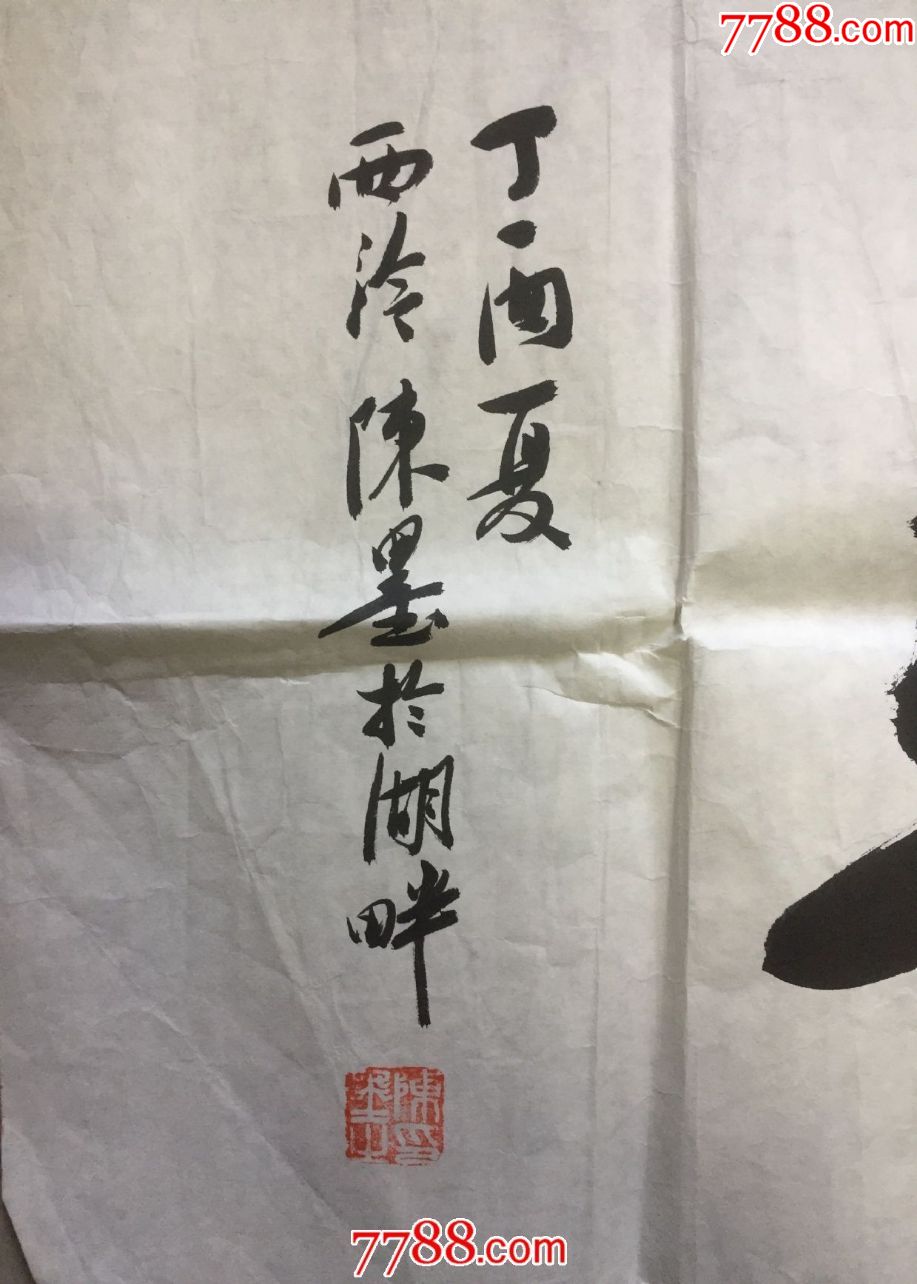 7788.com
丁酉夏
西泠陳墨於湖畔
7788.com